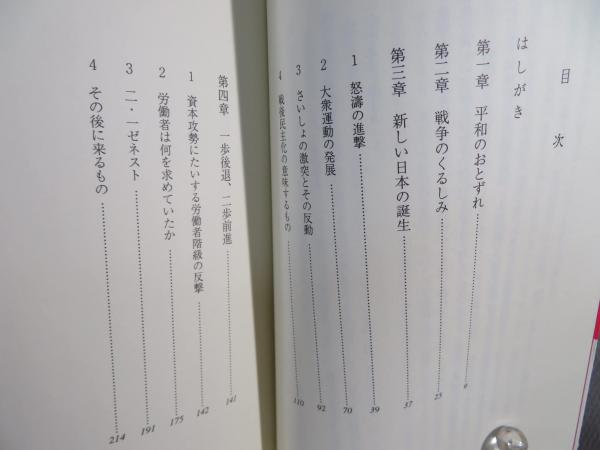 目次
はしがき
第一章 平和のおとずれ 9
第二章 戦争のくるしみ 25
第三章 新しい日本の誕生 37
1 怒濤の進撃 39
2 大衆運動の発展 70
3 さいしょの激突とその反動 92
4 戦後民主化の意味するもの 110
第四章 一歩後退、二歩前進 141
1 資本攻勢にたいする労働者階級の反撃 142
2 労働者は何を求めていたか 175
3 二・一ゼネスト 191
4 その後に来るもの 214